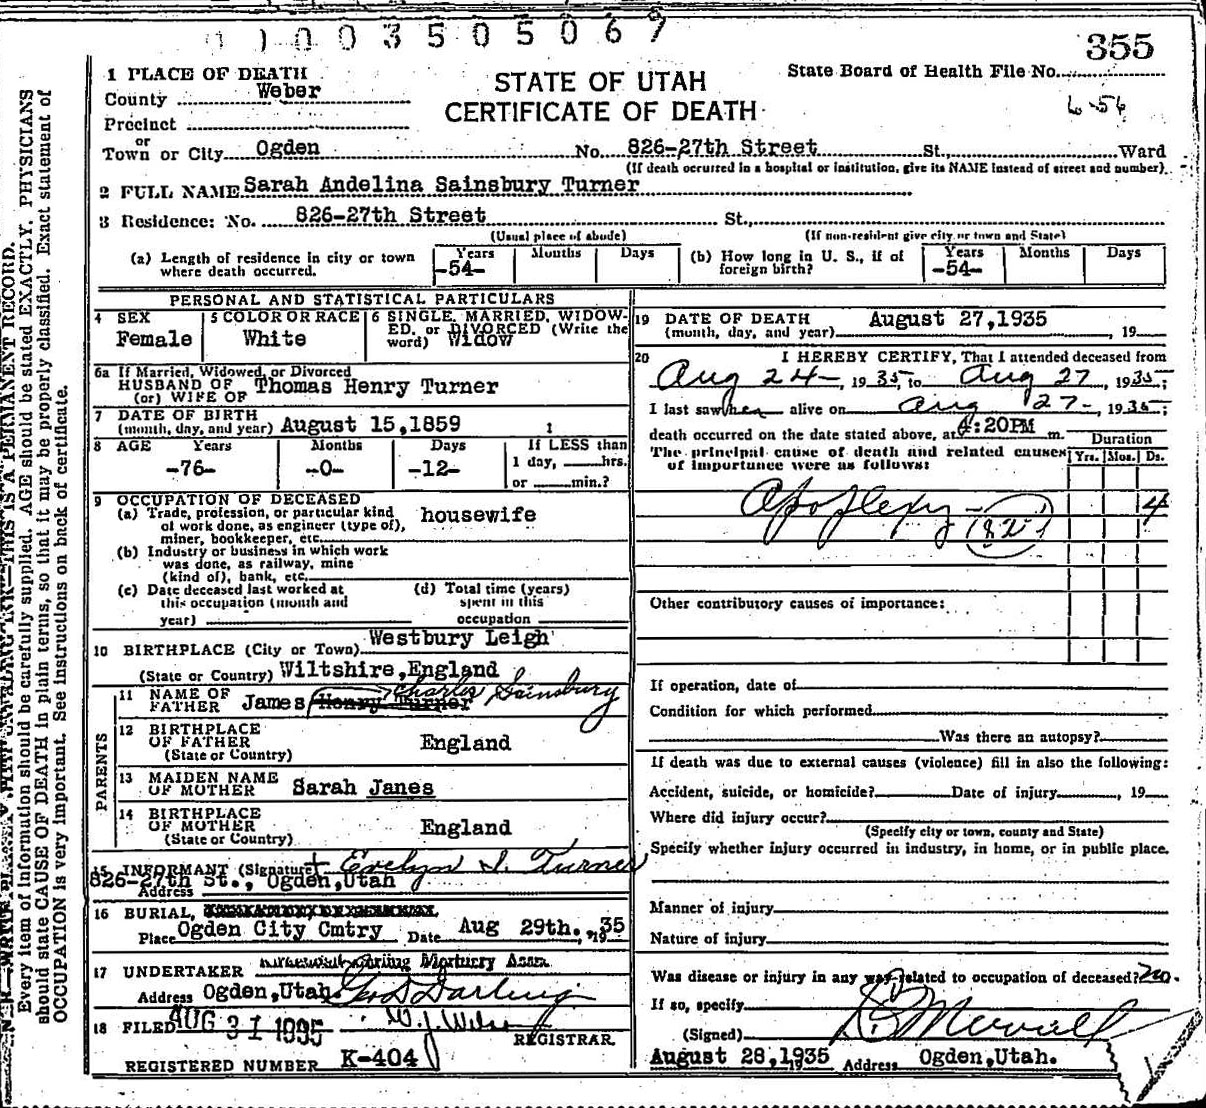 01003505069
355
1 PLACE OF DEATH
County Weber
Precinct
or
Town or City Ogden No. 826-27th Street St., Ward
STATE OF UTAH
CERTIFICATE OF DEATH
State Board of Health File No.
6-56
(If death occurred in a hospital or institution, give its NAME instead of street and number).
2 FULL NAME Sarah Andelina Sainsbury Turner
3 Residence: No. 826-27th Street St.,
(Usual place of abode) (If non-resident give city or town and State)
(a) Length of residence in city or town where death occurred. Years -54- Months Days
(b) How long in U. S., if of foreign birth? Years -54- Months Days
PERSONAL AND STATISTICAL PARTICULARS
4 SEX Female
5 COLOR OR RACE White
6 SINGLE, MARRIED, WIDOWED, or DIVORCED (Write the word) Widow
6a If Married, Widowed, or Divorced
HUSBAND OF
(or) WIFE OF Thomas Henry Turner
7 DATE OF BIRTH
(month, day, and year) August 15,1859
8 AGE Years -76- Months -0- Days -12- If LESS than
1 day, hrs.
or min.?
9 OCCUPATION OF DECEASED
(a) Trade, profession, or particular kind
of work done, as engineer (type of),
miner, bookkeeper, etc. housewife
(b) Industry or business in which work
was done, as railway, mine
(kind of), bank, etc.
(c) Date deceased last worked at
this occupation (month and
year)
(d) Total time (years)
spent in this
occupation
10 BIRTHPLACE (City or Town) Westbury Leigh
(State or Country) Wiltshire,England
PARENTS
11 NAME OF FATHER James Henry Turner Charles Sainsbury
12 BIRTHPLACE
OF FATHER
(State or Country) England
13 MAIDEN NAME
OF MOTHER Sarah Janes
14 BIRTHPLACE
OF MOTHER
(State or Country) England
15 INFORMANT (Signature) Evelyn S. Turner
826-27th St., Ogden,Utah
Address
16 BURIAL,
Place Ogden City Cmtry Date Aug 29th., 1935
17 UNDERTAKER Mortuary Assn
Address Ogden,Utah. Geo D Darling
18 FILED AUG 31 1935
REGISTRAR.
REGISTERED NUMBER K-404
19 DATE OF DEATH
(month, day, and year) August 27,1935 , 19
20 I HEREBY CERTIFY, That I attended deceased from
Aug 24 , 1935, to Aug 27 , 1935;
I last saw her alive on Aug 27 , 1935;
death occurred on the date stated above, at 4:20PM m.
The principal cause of death and related causes
of importance were as follows:
Duration
Yrs. Mos. Ds.
Apoplexy 4
Other contributory causes of importance:
If operation, date of
Condition for which performed
Was there an autopsy?
If death was due to external causes (violence) fill in also the following:
Accident, suicide, or homicide? Date of injury , 19
Where did injury occur?
(Specify city or town, county and State)
Specify whether injury occurred in industry, in home, or in public place.
Manner of injury
Nature of injury
Was disease or injury in any way related to occupation of deceased? no.
If so, specify
(Signed)
August 28,1935 19 Address Ogden,Utah.
Every item of information should be carefully supplied. AGE should be stated EXACTLY. PHYSICIANS
should state CAUSE OF DEATH in plain terms, so that it may be properly classified. Exact statement of
OCCUPATION is very important. See instructions on back of certificate.
THIS IS A PERMANENT RECORD.